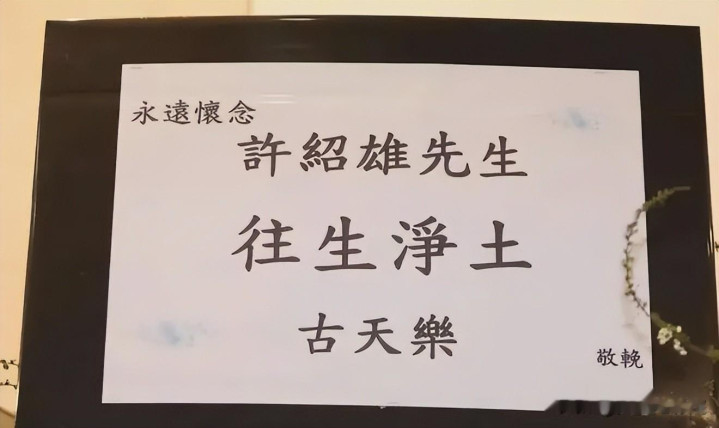 永遠懷念
許紹雄先生
往生淨土
古天樂
敬輓